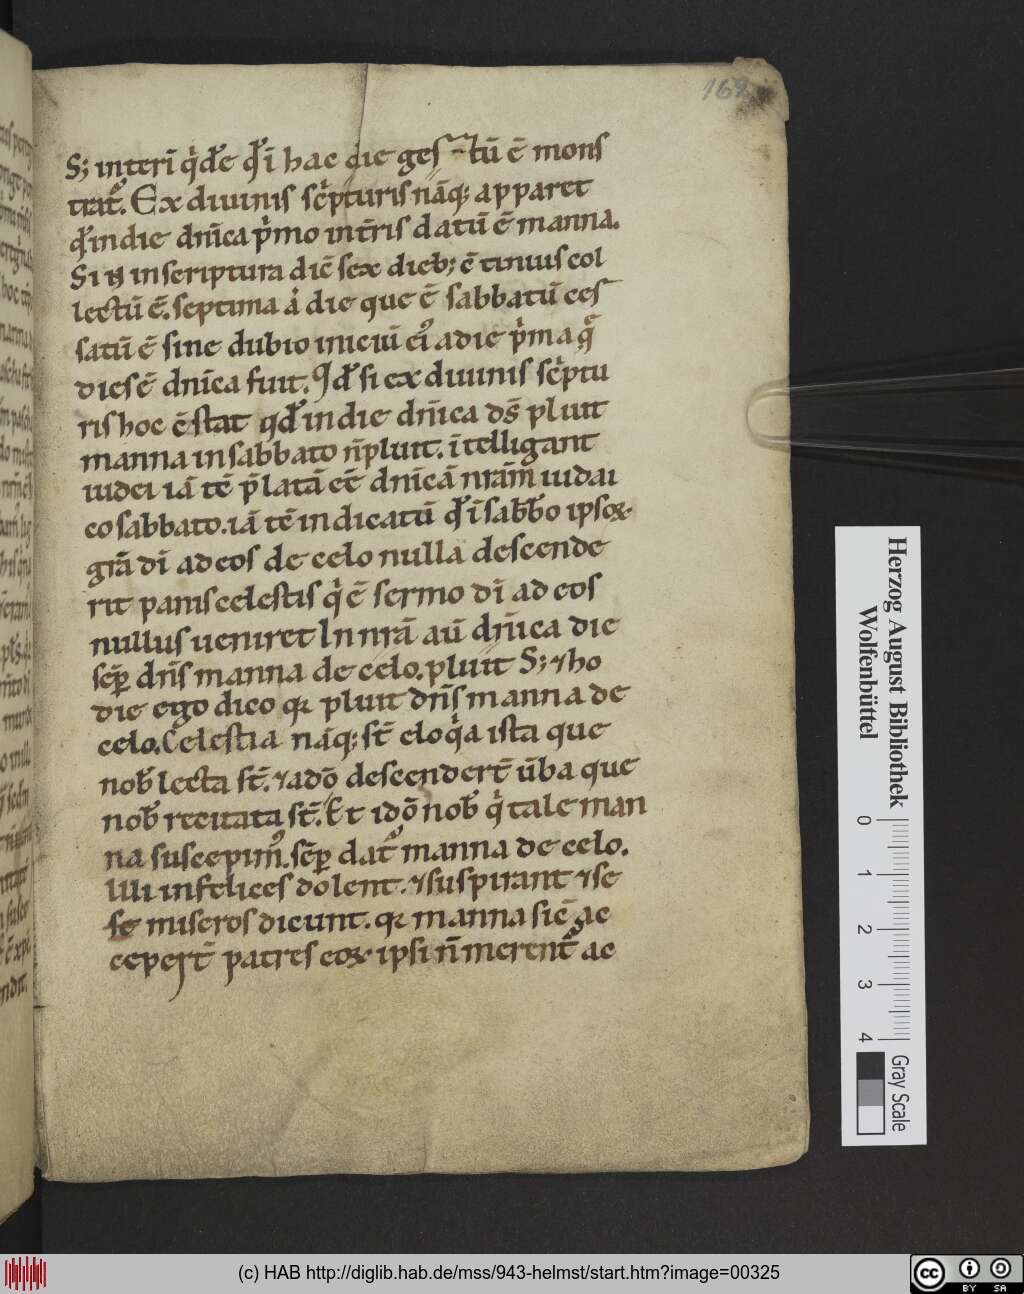 162
S; interī q̇dē qđ ī hac die gestū ē mons
trat᷒. Ex diuinis sc̄pturis nāq; apparet
qđ in die dn̄ica p̍mo int̄ris datū ē manna.
Si n̄ in scriptura dic̄ sex dieb; ē tinuis col
lectū ē. septima ȧ die que ē sabbatū ces
satū ē sine dubio iniciū ei᷒ a die p̍ma q̄
dies ē dn̄ica fuit. Qđ si ex diuinis sc̄ptu
ris hoc c̄stat qđ in die dn̄ica dš pluit
manna in sabbato n̄ pluit. ītelligant
iudei iā tē p̄latā eē dn̄icā nrām iudai
co sabbato. iā tē indicatū qđ ī sabb̄o ipsoꝝ
grā dī ad eos de celo nulla descende
rit panis celestis q̍ ē sermo dī ad eos
nullus ueniret In nrā aū dn̄ica die
sēp dn̄s manna de celo. pluit S; ⁊ ho
die ego dico qꝛ pluit dn̄s manna de
celo. Celestia nāq; st̄ eloq̍a ista que
nob̄ lecta st̄. ⁊ a dō descendert̄ ūba que
nob̄ recitata st̄. Et idō nob̄ q̍ tale man
na suscepim᷒. sēp dat᷒ manna de celo.
Illi infelices dolent. ⁊ suspirant ⁊ se
se miseros dicunt. qꝛ manna sic̄ ac
cepert̄ patres eoꝝ ipsi n̄ merent᷒ ac
Herzog August Bibliothek
Wolfenbüttel
0 1 2 3 4
Gray Scale
(c) HAB http://diglib.hab.de/mss/943-helmst/start.htm?image=00325
cc BY SA